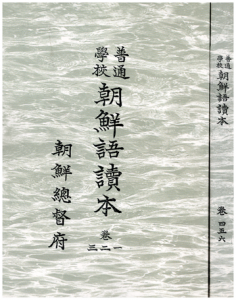 普通
學校
朝鮮語讀本
卷
一二三
朝鮮總督府
普通
學校
朝鮮語讀本
卷
四五六